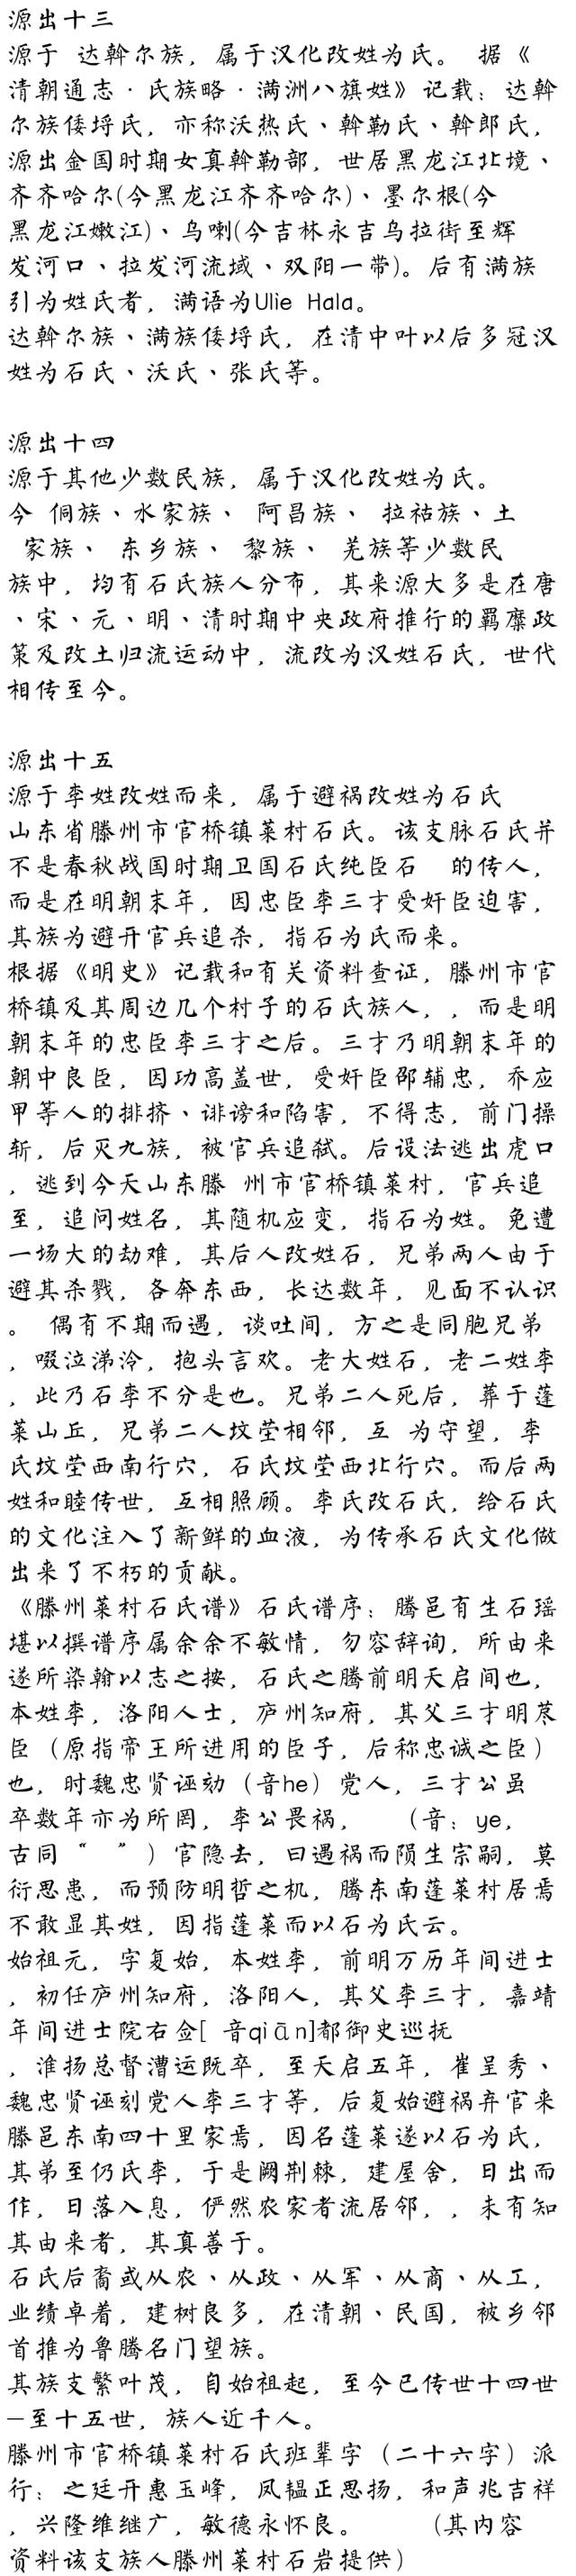 源出十三
源于 达斡尔族，属于汉化改姓为氏。 据《
清朝通志·氏族略·满洲八旗姓》记载：达斡
尔族倭埒氏，亦称沃热氏、斡勒氏、斡郎氏，
源出金国时期女真斡勒部，世居黑龙江北境、
齐齐哈尔(今黑龙江齐齐哈尔)、墨尔根(今
黑龙江嫩江)、乌喇(今吉林永吉乌拉街至辉
发河口、拉发河流域、双阳一带)。后有满族
引为姓氏者，满语为Ulie Hala。
达斡尔族、满族倭埒氏，在清中叶以后多冠汉
姓为石氏、沃氏、张氏等。
源出十四
源于其他少数民族，属于汉化改姓为氏。
今 侗族、水家族、 阿昌族、 拉祜族、土
家族、 东乡族、 黎族、 羌族等少数民
族中，均有石氏族人分布，其来源大多是在唐
、宋、元、明、清时期中央政府推行的羁縻政
策及改土归流运动中，流改为汉姓石氏，世代
相传至今。
源出十五
源于李姓改姓而来，属于避祸改姓为石氏
山东省滕州市官桥镇莱村石氏。该支脉石氏并
不是春秋战国时期卫国石氏纯臣石 的传人，
而是在明朝末年，因忠臣李三才受奸臣迫害，
其族为避开官兵追杀，指石为氏而来。
根据《明史》记载和有关资料查证，滕州市官
桥镇及其周边几个村子的石氏族人，，而是明
朝末年的忠臣李三才之后。三才乃明朝末年的
朝中良臣，因功高盖世，受奸臣邵辅忠，乔应
甲等人的排挤、诽谤和陷害，不得志，前门操
斩，后灭九族，被官兵追弑。后设法逃出虎口
，逃到今天山东滕 州市官桥镇莱村，官兵追
至，追问姓名，其随机应变，指石为姓。免遭
一场大的劫难，其后人改姓石，兄弟两人由于
避其杀戮，各奔东西，长达数年，见面不认识
。 偶有不期而遇，谈吐间，方之是同胞兄弟
，啜泣涕泠，抱头言欢。老大姓石，老二姓李
，此乃石李不分是也。兄弟二人死后，葬于蓬
莱山丘，兄弟二人坟茔相邻，互 为守望，李
氏坟茔西南行穴，石氏坟茔西北行穴。而后两
姓和睦传世，互相照顾。李氏改石氏，给石氏
的文化注入了新鲜的血液，为传承石氏文化做
出来了不朽的贡献。
《滕州莱村石氏谱》石氏谱序：腾邑有生石瑶
堪以撰谱序属余余不敏情，勿容辞询，所由来
遂所染翰以志之按，石氏之腾前明天启间也，
本姓李，洛阳人士，庐州知府，其父三才明荩
臣（原指帝王所进用的臣子，后称忠诚之臣）
也，时魏忠贤诬劾（音he）党人，三才公虽
卒数年亦为所罔，李公畏祸， （音：ye，
古同“ ”）官隐去，曰遇祸而陨生宗嗣，莫
衍思患，而预防明哲之机，腾东南蓬莱村居焉
不敢显其姓，因指蓬莱而以石为氏云。
始祖元，字复始，本姓李，前明万历年间进士
，初任庐州知府，洛阳人，其父李三才，嘉靖
年间进士院右佥[ 音qiān]都御史巡抚
，淮扬总督漕运既卒，至天启五年，崔呈秀、
魏忠贤诬刻党人李三才等，后复始避祸弃官来
滕邑东南四十里家焉，因名蓬莱遂以石为氏，
其弟至仍氏李，于是阙荆棘，建屋舍，日出而
作，日落入息，俨然农家者流居邻，，未有知
其由来者，其真善于。
石氏后裔或从农、从政、从军、从商、从工，
业绩卓着，建树良多，在清朝、民国，被乡邻
首推为鲁腾名门望族。
其族支繁叶茂，自始祖起，至今已传世十四世
—至十五世，族人近千人。
滕州市官桥镇莱村石氏班辈字（二十六字）派
行：之廷开惠玉峰，凤韫正思扬，和声兆吉祥
，兴隆维继广，敏德永怀良。 （其内容
资料该支族人滕州莱村石岩提供）